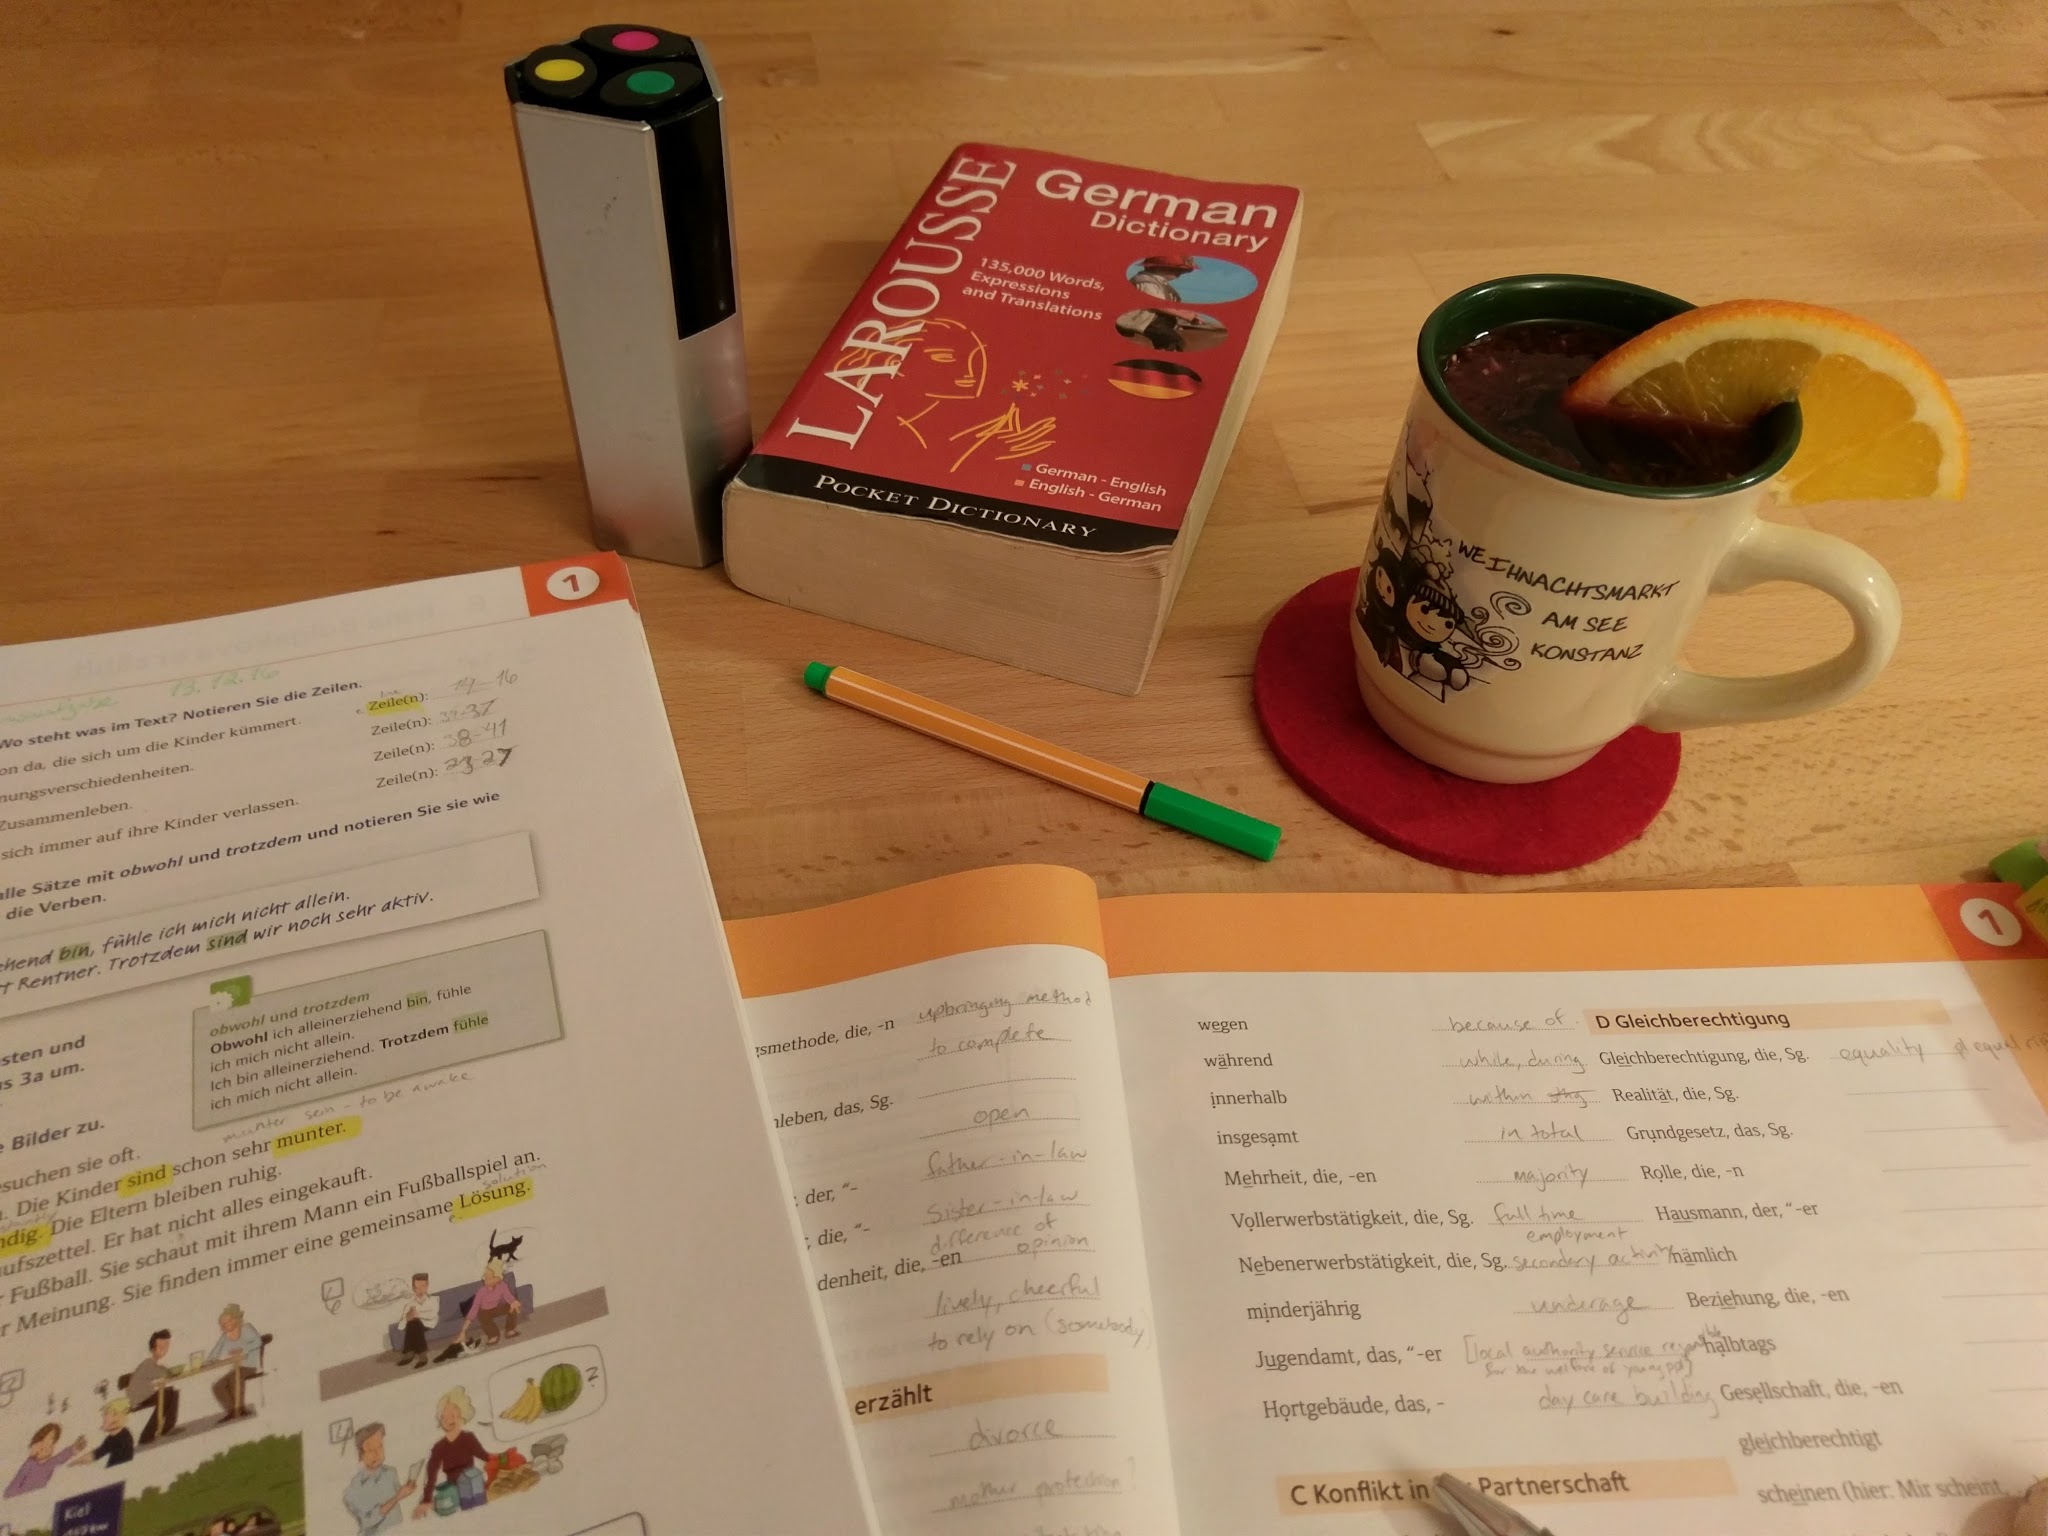 LAROUSSE
German
Dictionary
135,000 Words,
Expressions
and Translations
German - English
English - German
POCKET DICTIONARY
WEIHNACHTSMARKT
AM SEE
KONSTANZ
1
13.12.16
Wo steht was im Text? Notieren Sie die Zeilen.
on da, die sich um die Kinder kümmert.
Zeile(n): 14-16
nungsverschiedenheiten.
Zeile(n): 37
Zusammenleben.
Zeile(n): 38-41
sich immer auf ihre Kinder verlassen.
Zeile(n): 23-27
alle Sätze mit obwohl und trotzdem und notieren Sie sie wie
die Verben.
ehend bin, fühle ich mich nicht allein.
Rentner. Trotzdem sind wir noch sehr aktiv.
obwohl und trotzdem
Obwohl ich alleinerziehend bin, fühle
ich mich nicht allein.
Ich bin alleinerziehend. Trotzdem fühle
ich mich nicht allein.
sten und
s 3a um.
e Bilder zu.
munter sein - to be awake
esuchen sie oft.
Die Kinder sind schon sehr munter.
ndig. Die Eltern bleiben ruhig.
aufszettel. Er hat nicht alles eingekauft.
r Fußball. Sie schaut mit ihrem Mann ein Fußballspiel an.
solution
r Meinung. Sie finden immer eine gemeinsame Lösung.
2
6
4
?
Kiel
gsmethode, die, -n upbringing method
to complete
nleben, das, Sg.
open
der, "- father-in-law
die, "- Sister-in-law
denheit, die, -en difference of opinion
lively, cheerful
to rely on (somebody)
erzählt
divorce
mother protection?
1
wegen because of
während while, during
innerhalb within
insgesamt in total
Mehrheit, die, -en majority
Vollerwerbstätigkeit, die, Sg. full time employment
Nebenerwerbstätigkeit, die, Sg. secondary activity
minderjährig underage
Jugendamt, das, "-er [local authority service responsible for the welfare of young ppl]
Hortgebäude, das, - day care building
C Konflikt in Partnerschaft
D Gleichberechtigung
Gleichberechtigung, die, Sg. equality
Realität, die, Sg.
Grundgesetz, das, Sg.
Rolle, die, -n
Hausmann, der, "-er
nämlich
Beziehung, die, -en
halbtags
Gesellschaft, die, -en
gleichberechtigt
scheinen (hier: Mir scheint,